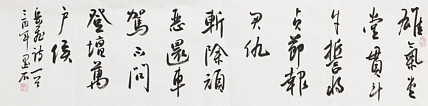 雄氣堂
堂貫斗
牛誓將
貞節報
君仇
斬除頑
惡還車
駕不問
登壇萬
戶侯
岳飛詩一首
年